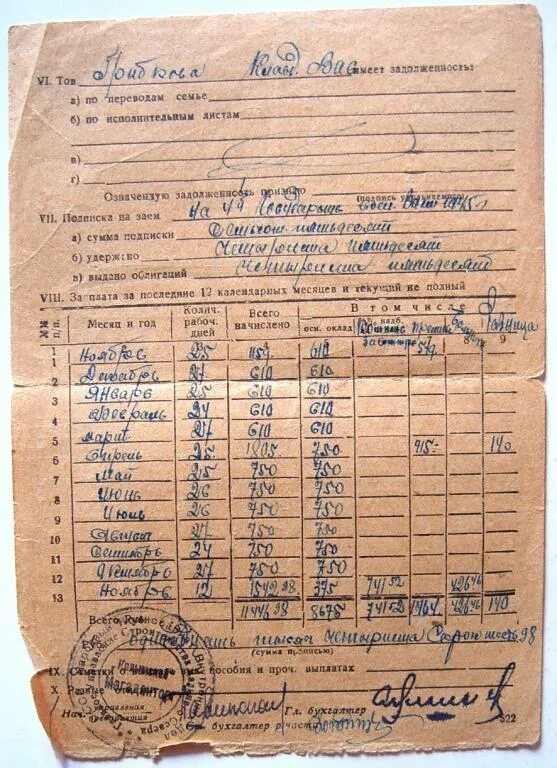 VI. Тов. Грибкова Клавд. Вас имеет задолженность:
а) по переводам семье
б) по исполнительным листам
в)
г)
Означенную задолженность признаю
(подпись увольняемого)
VII. Подписка на заем на 4й Государств воен. Заем 1945г
а) сумма подписки пятьдесят
б) удержано Четыреста пятьдесят
в) выдано облигаций Четыреста пятьдесят
VIII. Зарплата за последние 12 календарных месяцев и текущий не полный
№№ п.п. Месяц и год Колич. рабоч. дней Всего начислено В том числе
осн. оклад надб. премия Разница
3 4 5 7 8 9
1 Ноябрь 25 1159 610 549
2 Декабрь 27 610 610
3 Январь 25 610 610
4 Февраль 24 610 610
5 март 27 610 610
6 Апрель 25 1805 750 915- 140
7 Май 25 750 750
8 Июнь 26 750 750
9 Июль 26 750 750
10 Август 27 750 750
11 Сентябрь 24 750 750
12 Октябрь 27 750 750
13 Ноябрь 12 1542 98 375 741 52 426 46
Всего Рублей 11446 98 8675 741 52 1464 426 46 140
одиннадцать тысяч четыреста сорок шесть 98
(сумма прописью)
IX. Отметки о пособия и проч. выплатах
X. Разные
Нач. управления предприятия Гл. бухгалтер
бухгалтер участка
322
Колымская
Магаданского